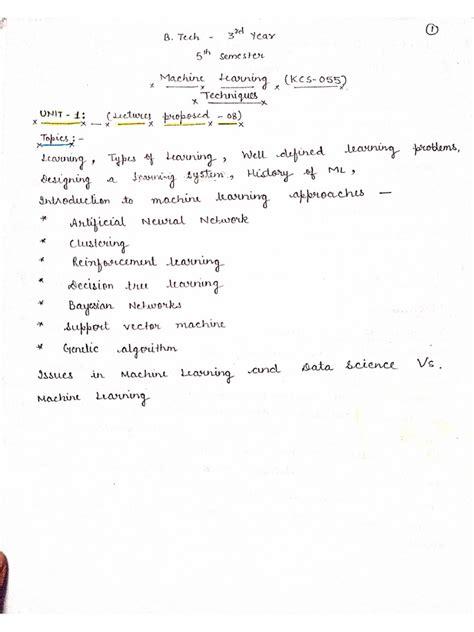 ①
B. Tech - 3rd Year
5th Semester
Machine Learning (KCS-055)
Techniques
UNIT - 1: (Lectures proposed - 08)
Topics: -
Learning, Types of Learning, Well defined learning problems,
Designing a learning system, History of ML,
Introduction to machine learning approaches —
* Artificial Neural Network
* Clustering
* Reinforcement learning
* Decision tree learning
* Bayesian Networks
* Support vector machine
* Genetic algorithm
Issues in Machine Learning and Data Science Vs.
Machine Learning